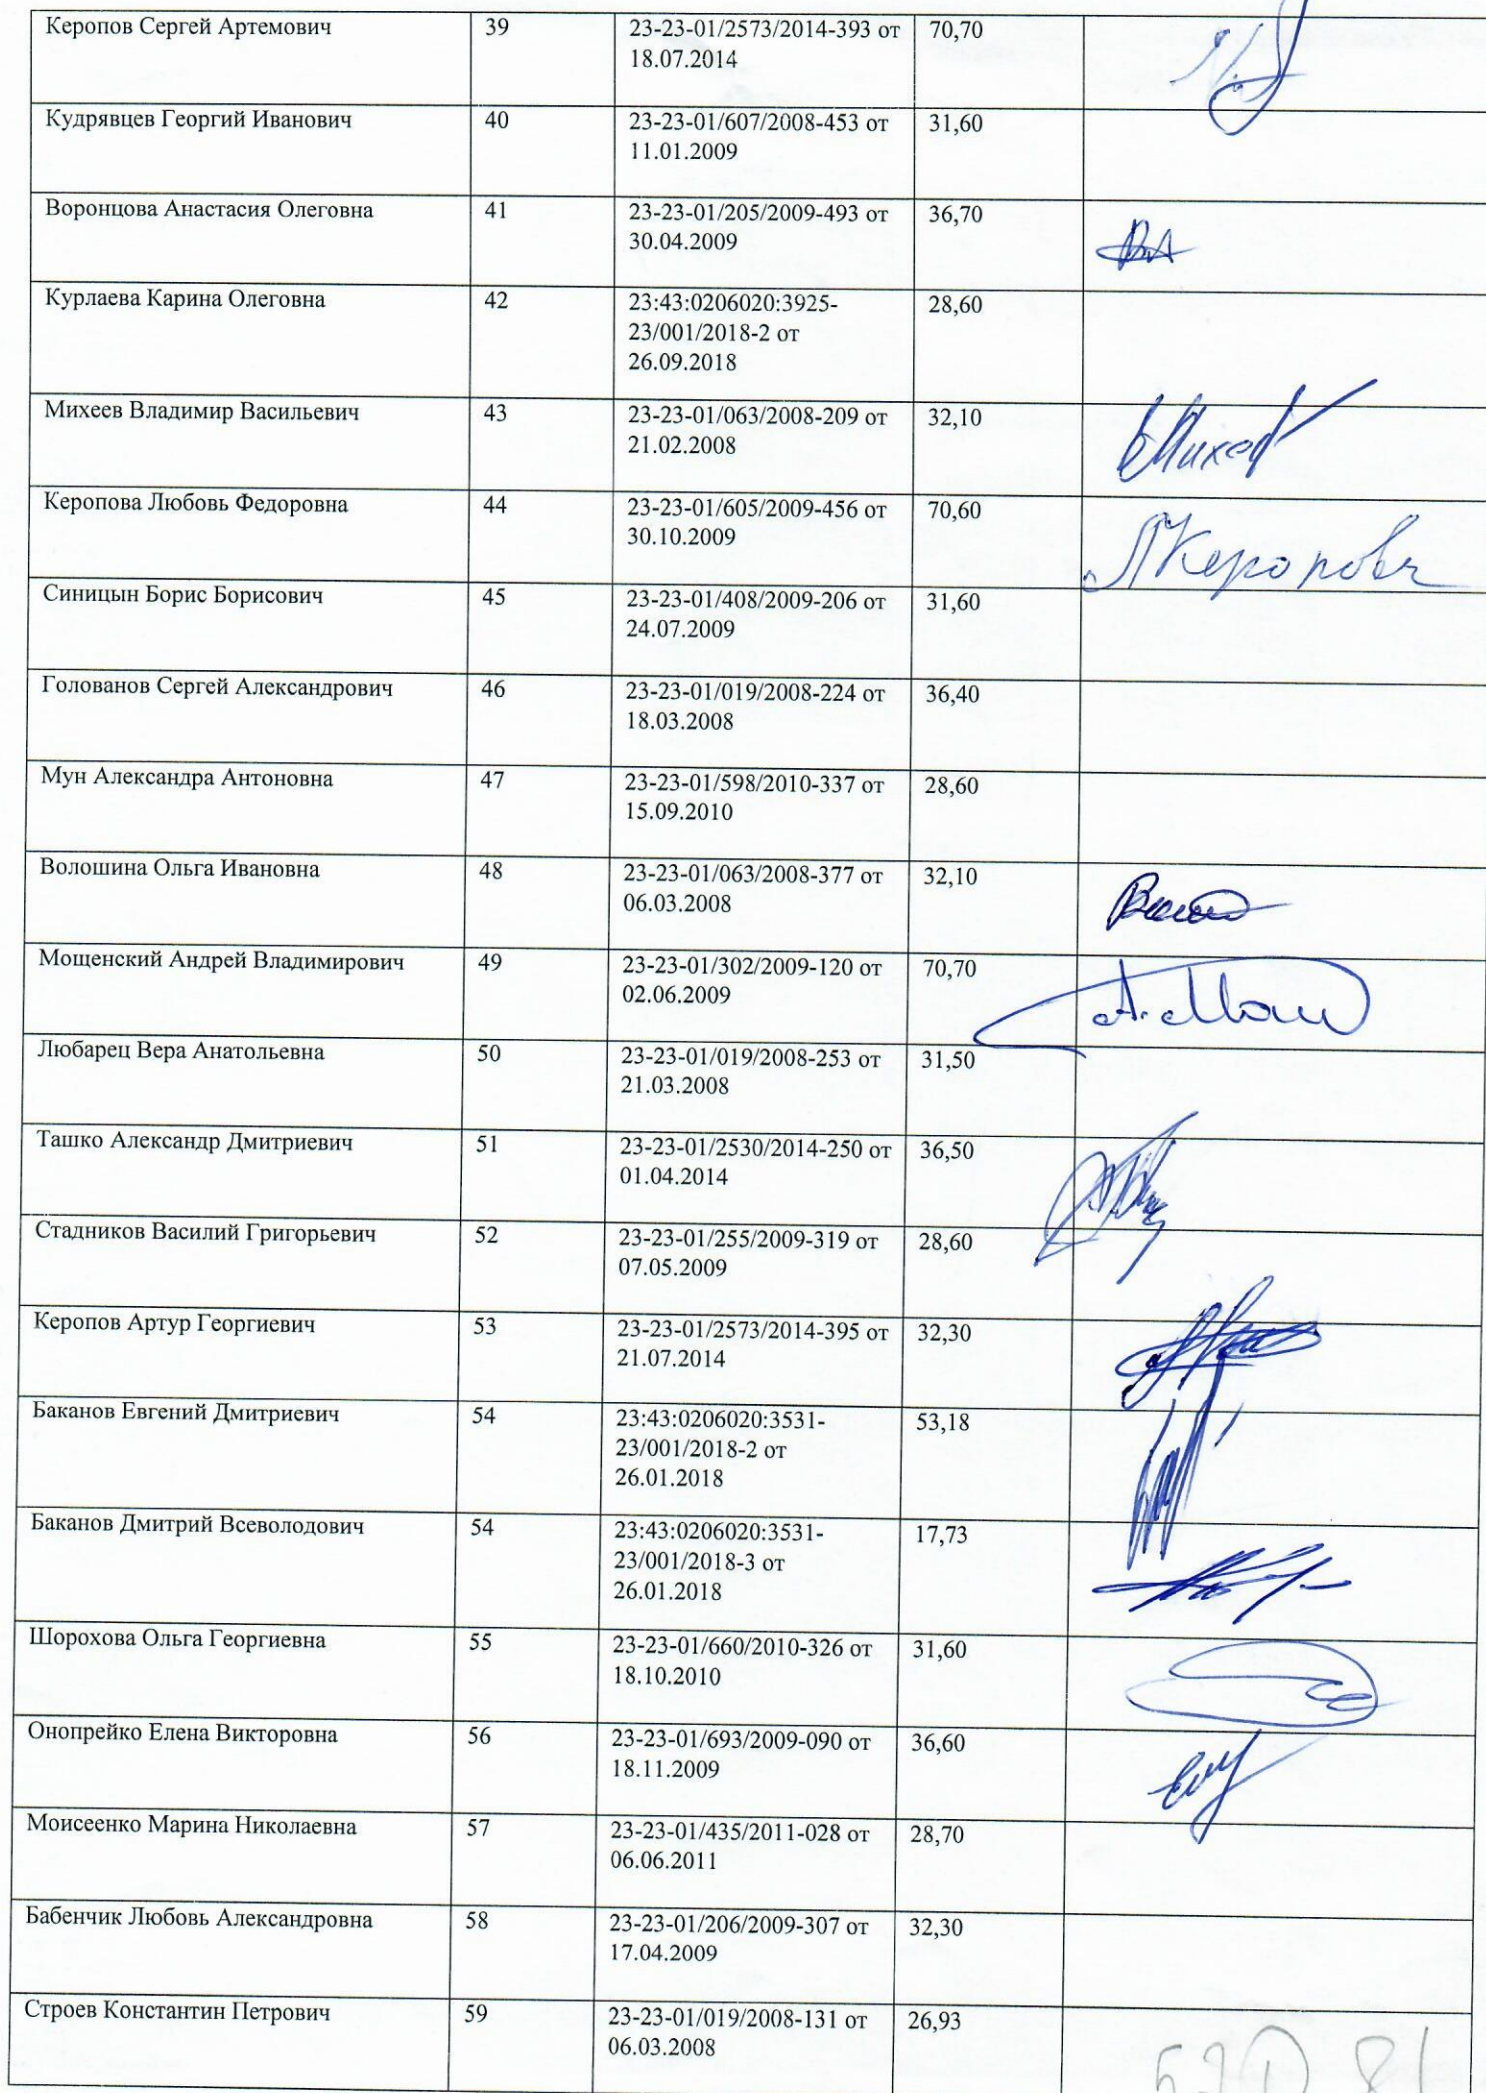 Керопов Сергей Артемович 39 23-23-01/2573/2014-393 от 70,70
18.07.2014
Кудрявцев Георгий Иванович 40 23-23-01/607/2008-453 от 31,60
11.01.2009
Воронцова Анастасия Олеговна 41 23-23-01/205/2009-493 от 36,70
30.04.2009
ВА
Курлаева Карина Олеговна 42 23:43:0206020:3925- 28,60
23/001/2018-2 от
26.09.2018
Михеев Владимир Васильевич 43 23-23-01/063/2008-209 от 32,10
21.02.2008
Керопова Любовь Федоровна 44 23-23-01/605/2009-456 от 70,60
30.10.2009
ЛКеропова
Синицын Борис Борисович 45 23-23-01/408/2009-206 от 31,60
24.07.2009
Голованов Сергей Александрович 46 23-23-01/019/2008-224 от 36,40
18.03.2008
Мун Александра Антоновна 47 23-23-01/598/2010-337 от 28,60
15.09.2010
Волошина Ольга Ивановна 48 23-23-01/063/2008-377 от 32,10
06.03.2008
Мощенский Андрей Владимирович 49 23-23-01/302/2009-120 от 70,70
02.06.2009
Любарец Вера Анатольевна 50 23-23-01/019/2008-253 от 31,50
21.03.2008
Ташко Александр Дмитриевич 51 23-23-01/2530/2014-250 от 36,50
01.04.2014
Стадников Василий Григорьевич 52 23-23-01/255/2009-319 от 28,60
07.05.2009
Керопов Артур Георгиевич 53 23-23-01/2573/2014-395 от 32,30
21.07.2014
Баканов Евгений Дмитриевич 54 23:43:0206020:3531- 53,18
23/001/2018-2 от
26.01.2018
Баканов Дмитрий Всеволодович 54 23:43:0206020:3531- 17,73
23/001/2018-3 от
26.01.2018
Шорохова Ольга Георгиевна 55 23-23-01/660/2010-326 от 31,60
18.10.2010
Онопрейко Елена Викторовна 56 23-23-01/693/2009-090 от 36,60
18.11.2009
Моисеенко Марина Николаевна 57 23-23-01/435/2011-028 от 28,70
06.06.2011
Бабенчик Любовь Александровна 58 23-23-01/206/2009-307 от 32,30
17.04.2009
Строев Константин Петрович 59 23-23-01/019/2008-131 от 26,93
06.03.2008